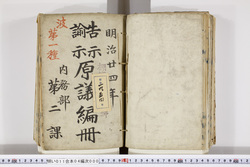 明治廿四年
告示
諭示
原議編冊
内務部
第二課
波
第一種